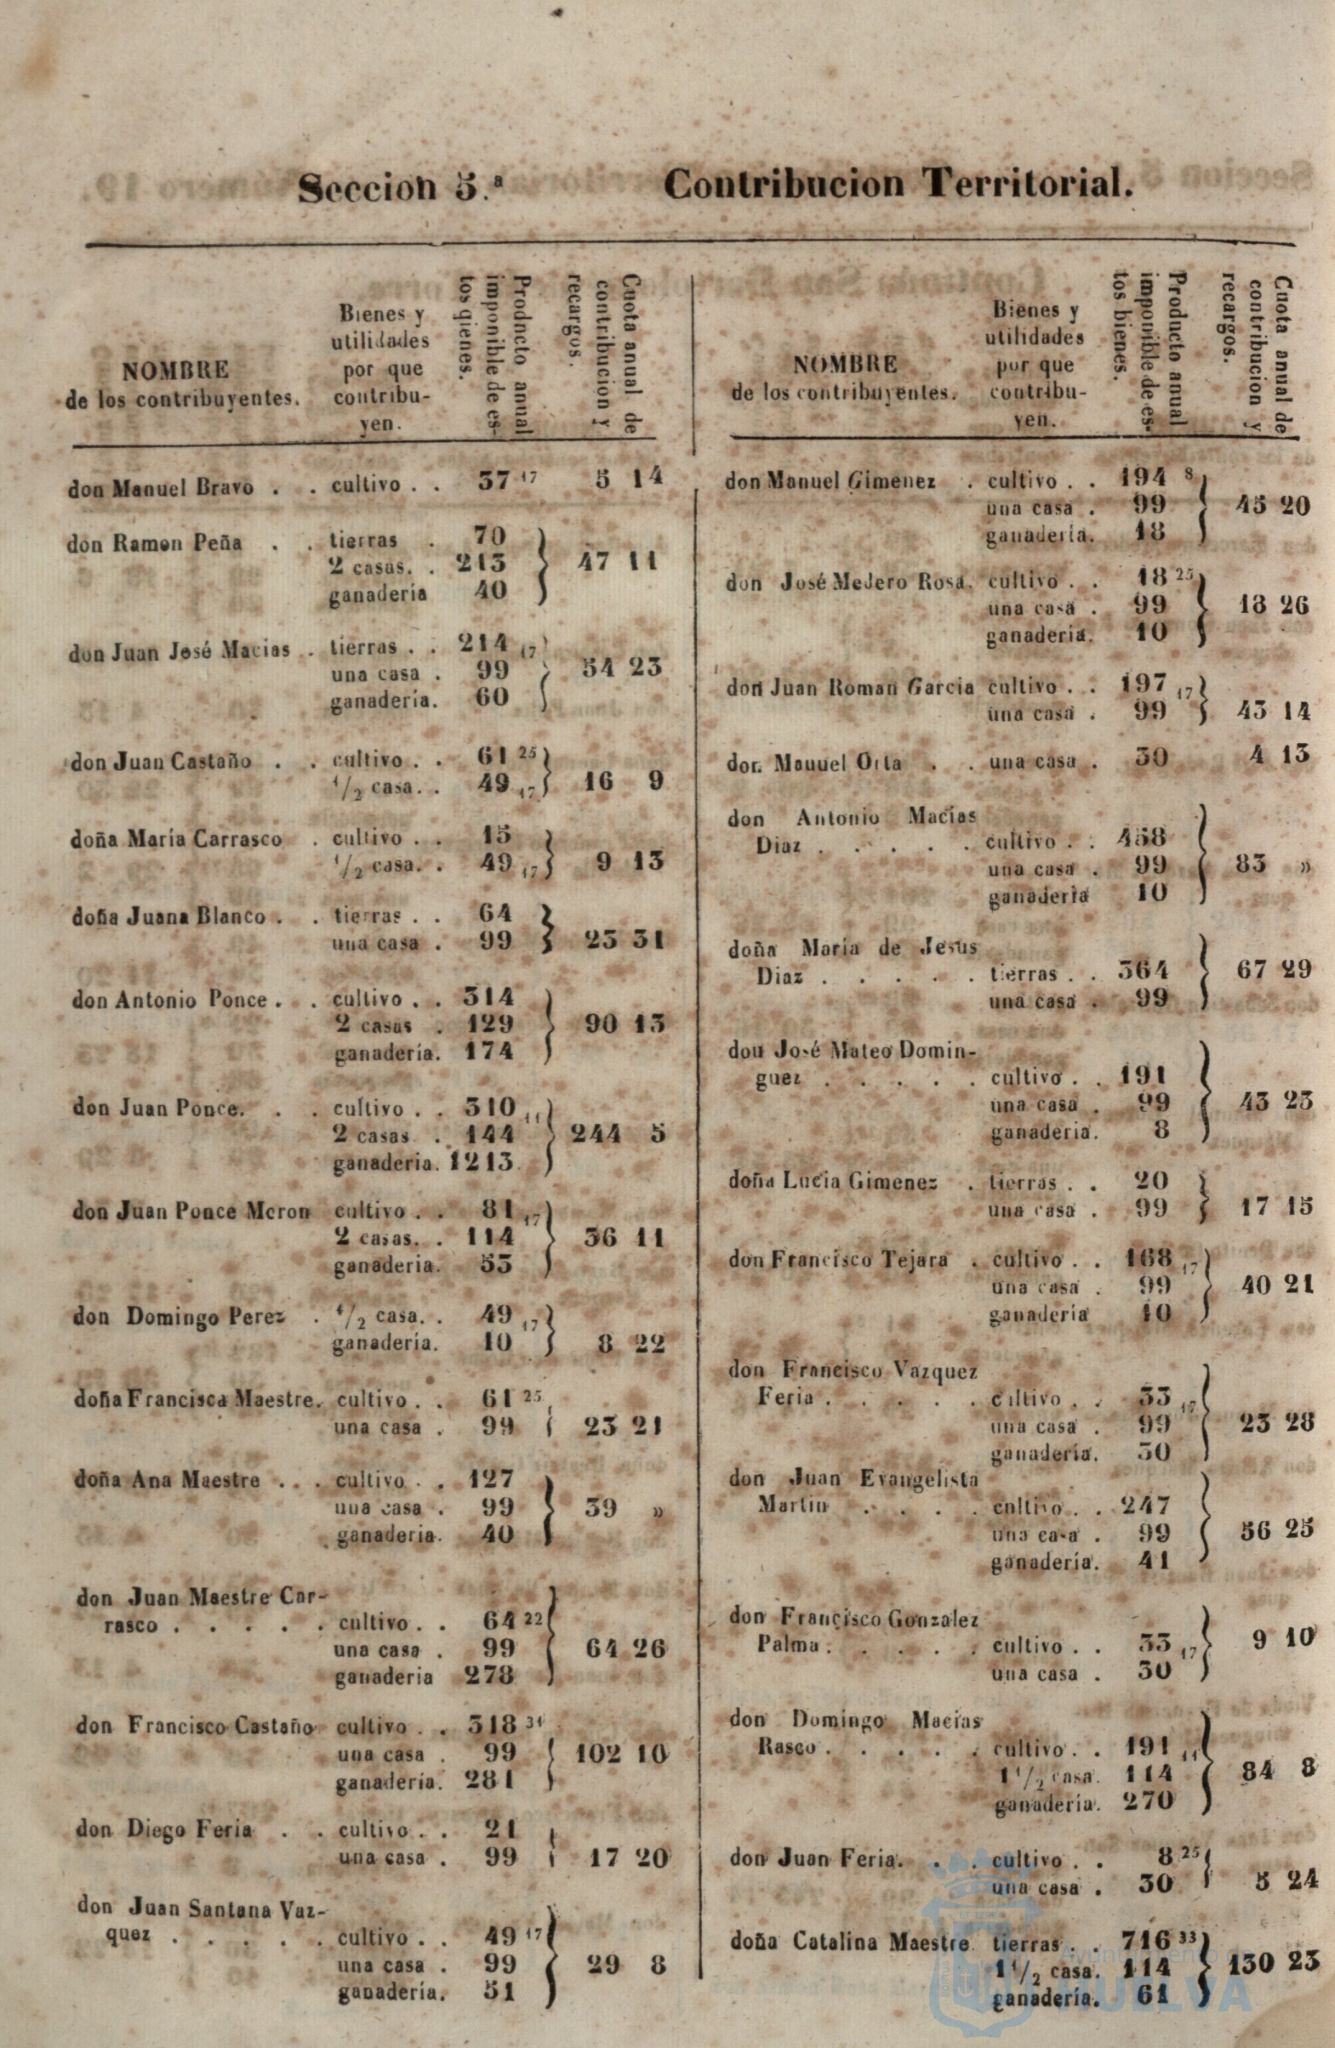 Seccion 5.ª Contribucion Territorial.
NOMBRE
de los contribuyentes.
Bienes y
utilidades
por que
contribu-
yen.
Prodncto anual
imponible de es-
tos qienes.
Cuota anual de
contribucion y
recargos.
don Manuel Bravo . . cultivo . . 37 17 5 14
don Ramon Peña . . tierras . 70
2 casas. . 213 47 11
ganadería 40
don Juan José Macias . tierras . . 214 17
una casa . 99 54 23
ganadería. 60
don Juan Castaño . . cultivo . . 61 25
1/2 casa. . 49 17 16 9
doña María Carrasco . cultivo . . 15
1/2 casa. . 49 17 9 13
doña Juana Blanco . . tierras . . 64
una casa . 99 23 31
don Antonio Ponce . . cultivo . . 314
2 casas . 129 90 13
ganadería. 174
don Juan Ponce. . . cultivo . . 310 11
2 casas . 144 244 5
ganaderia. 1213
don Juan Ponce Meron cultivo . . 81 17
2 casas. . 114 36 11
ganaderia. 53
don Domingo Perez . 1/2 casa. . 49 17
ganadería. 10 8 22
doña Francisca Maestre. cultivo . . 61 25
una casa . 99 23 21
doña Ana Maestre . . . cultivo . . 127
una casa . 99 39 »
ganaderia. 40
don Juan Maestre Car-
rasco . . . . . cultivo . . 64 22
una casa . 99 64 26
ganaderia 278
don Francisco Castaño cultivo . . 318 31
una casa . 99 102 10
ganadería. 281
don Diego Feria . . cultivo . . 21
una casa . 99 17 20
don Juan Santana Vaz-
quez . . . . . cultivo . . 49 17
una casa . 99 29 8
ganadería. 51
NOMBRE
de los contribuyentes.
Bienes y
utilidades
por que
contribu-
yen.
Producto anual
imponible de es-
tos bienes.
Cuota anual de
contribucion y
recargos.
don Manuel Gimenez . cultivo . . 194 8
una casa . 99 45 20
ganadería. 18
don José Medero Rosa. cultivo . . 18 25
una casa . 99 18 26
ganaderia. 10
don Juan Roman Garcia cultivo . . 197 17
una casa . 99 43 14
don Manuel Orta . . una casa . 30 4 13
don Antonio Macías
Diaz . . . . . cultivo . . 458
una casa . 99 83 »
ganadería 10
doña María de Jesus
Diaz . . . . . tierras . . 364 67 29
una casa . 99
don José Mateo Domin-
guez . . . . . cultivo . . 191
una casa . 99 43 23
ganaderia. 8
doña Lucia Gimenez . tierras . . 20
una casa . 99 17 15
don Francisco Tejara . cultivo . . 168 17
una casa . 99 40 21
ganadería 10
don Francisco Vazquez
Feria . . . . . cultivo . . 33 17
una casa . 99 23 28
ganadería. 30
don Juan Evangelista
Martin . . . . cultivo . . 247
una casa . 99 56 25
ganadería. 41
don Francisco Gonzalez
Palma . . . . . cultivo . . 33 17 9 10
una casa . 30
don Domingo Macías
Rasco . . . . . cultivo . . 191 11
1 1/2 casa. 114 84 8
ganaderia. 270
don Juan Feria. . . cultivo . . 8 25
una casa . 30 5 24
doña Catalina Maestre tierras . . 716 33
1 1/2 casa. 114 130 23
ganadería. 61